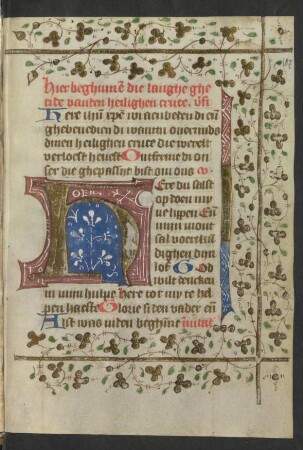 Hier beghinnē die langhe ghe
tide vanten heilighen cruce. vsī
Here ihū xpē wi aenbeden di eñ
ghebenedien di want du ouermids
dinen heilighen cruce die werelt
verloest heueste Ontferme di on
ser die ghepassijt bist om ons
Ere du salst
op doen my
ne lippen Eñ
minn mont
sal voertkū
dighen dijn
lof God
wilt dencken
in minn hulpe here tot my te hel
pen haeste Glorie si den vader eñ
Alst was in den beghinne